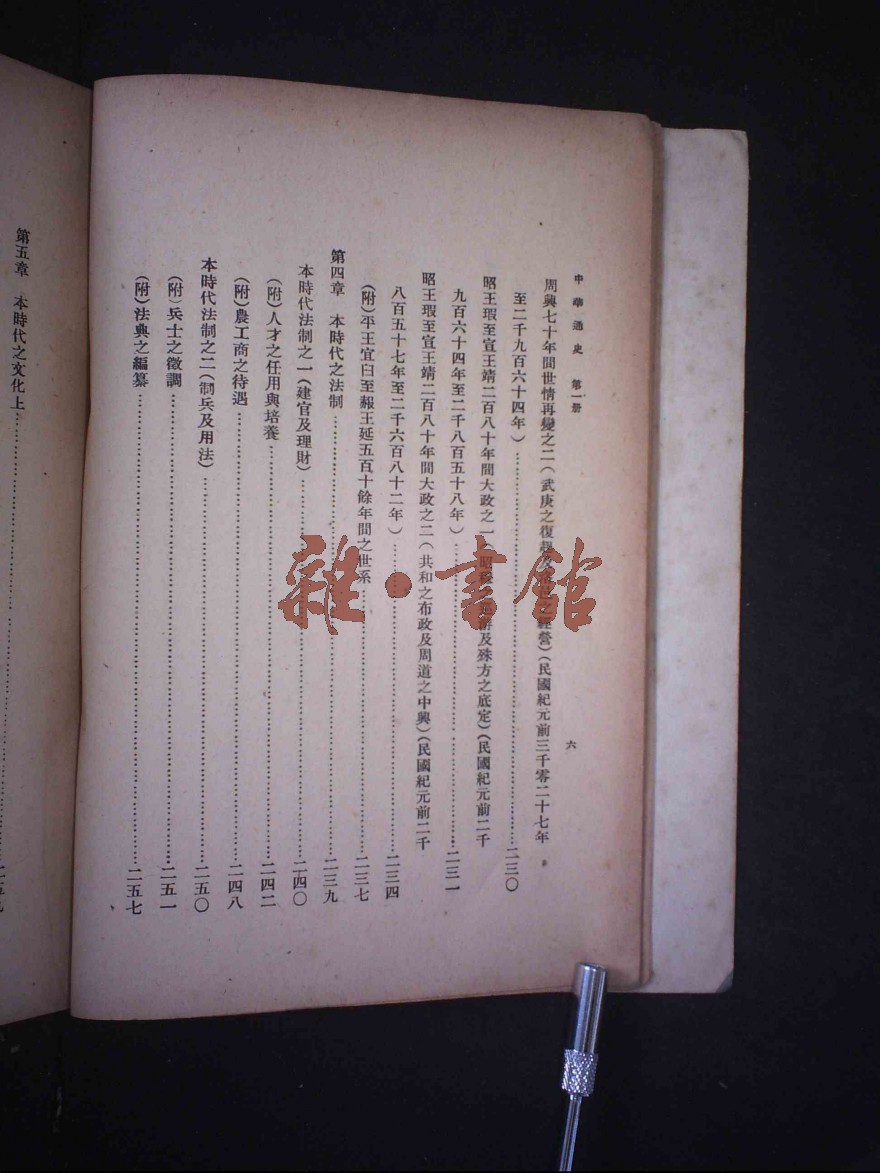 中華通史 第一册
六
周興七十年間世情再變之二(武庚之復起及 經營)(民國紀元前三千零二十七年
至二千九百六十四年)……二三〇
昭王瑕至宣王靖二百八十年間大政之一(昭穆 及殊方之底定)(民國紀元前二千
九百六十四年至二千八百五十八年)……二三一
昭王瑕至宣王靖二百八十年間大政之二(共和之布政及周道之中興)(民國紀元前二千
八百五十七年至二千六百八十二年)……二三四
(附)平王宜臼至赧王延五百十餘年間之世系……二三七
第四章 本時代之法制……二三九
本時代法制之一(建官及理財)……二四〇
(附)人才之任用與培養……二四二
(附)農工商之待遇……二四八
本時代法制之二(制兵及用法)……二五〇
(附)兵士之徵調……二五一
(附)法典之編纂……二五七
第五章 本時代之文化上……二五九
雜·書館